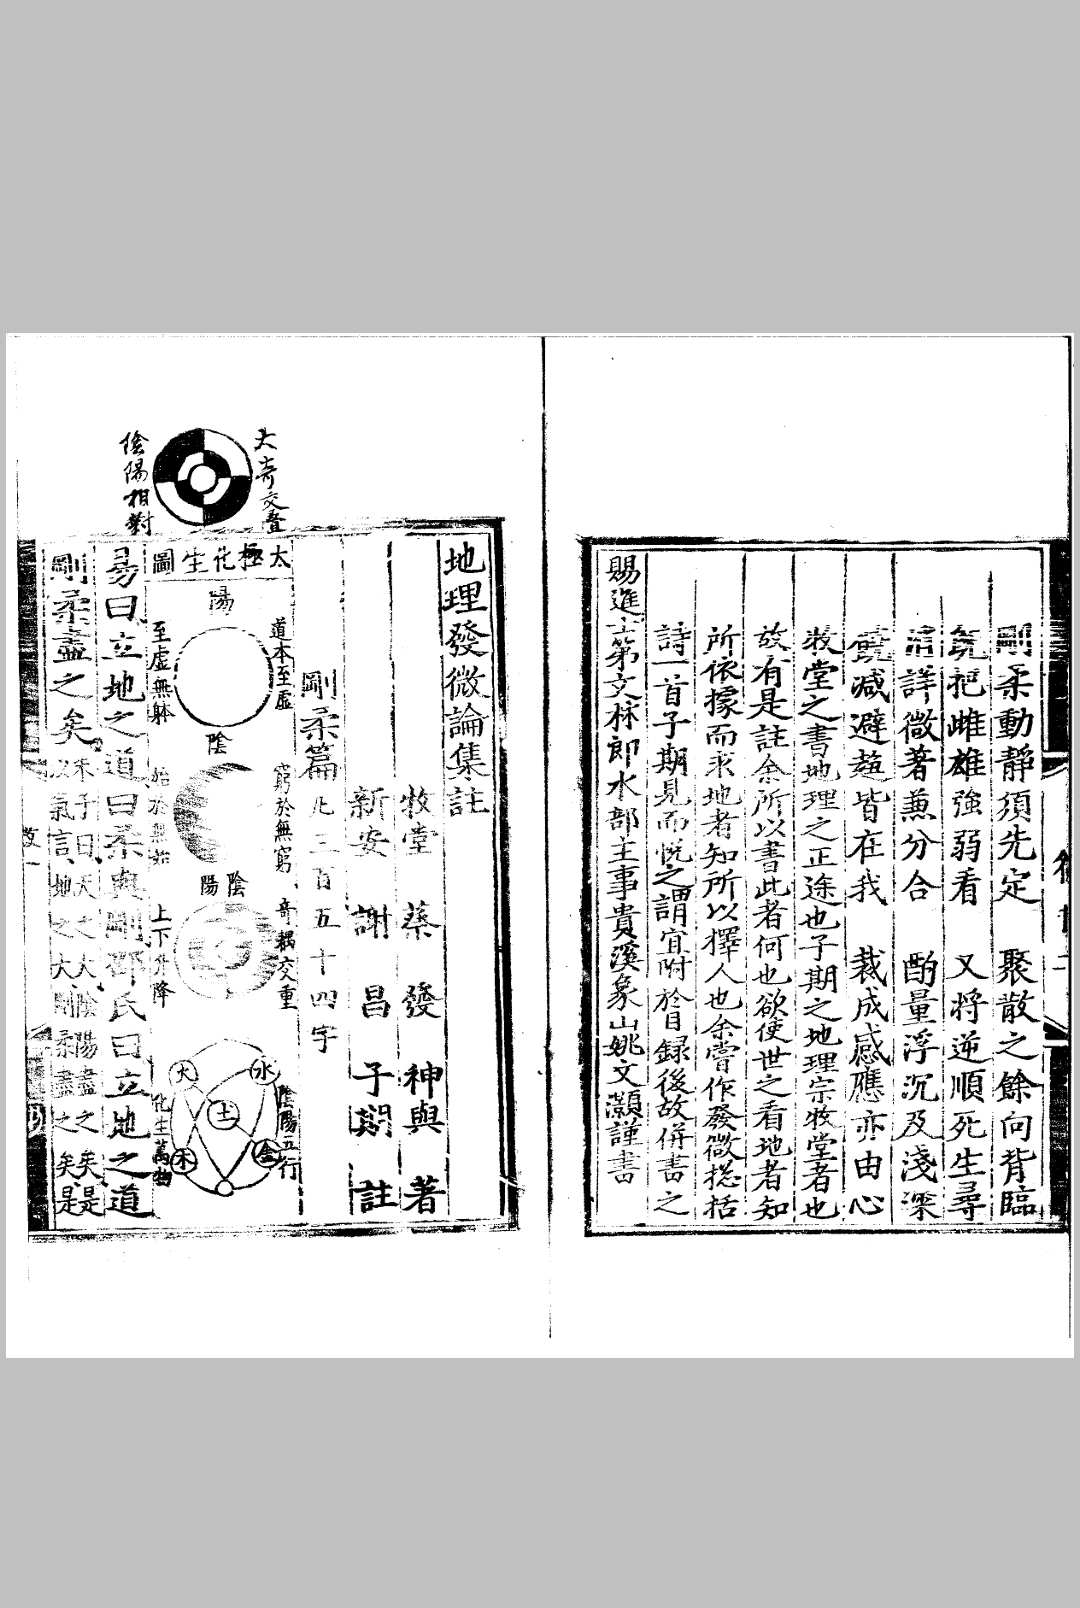 剛柔動靜須先定　聚散之餘向背臨
既把雌雄強弱看　又將逆順死生尋
詳微著兼分合　酌量浮沉及淺深
減避趍皆在我　裁成感應亦由心
牧堂之書地理之正途也子期之地理宗牧堂者也
故有是註余所以書此者何也欲使世之看地者知
所依據而求地者知所以擇人也余嘗作發微揔括
詩一首子期見而悅之謂宜附於目録後故併書之
賜進士第文林郎水部主事貴溪象山姚文灝謹書
地理發微論集註
牧堂　蔡　發　神與　著
新安　謝　昌　子期　註
剛柔篇　凡三百五十四字
大奇交重
陰陽相對
太極化生圖
陽
道本至虛
至虛無躰
陰
窮於無窮
始於無始
陰
陽
奇耦交重
上下升降
陰陽五行
化生萬物
火
水
土
木
金
易曰立地之道曰柔與剛邵氏曰立地之道
剛柔盡之矣
朱子曰天之大陰陽盡之矣是
以氣言地之大剛柔盡之矣是